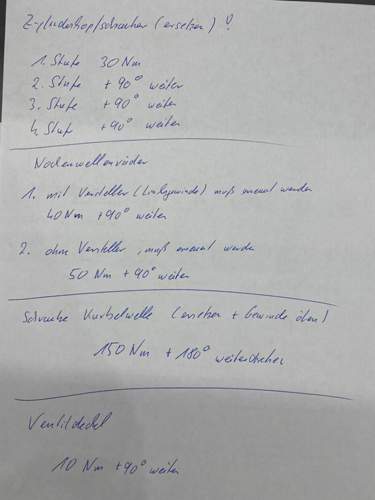 Zylinderkopfschrauben (ersetzen) !
1. Stufe 30 Nm
2. Stufe + 90° weiter
3. Stufe + 90° weiter
4. Stufe + 90° weiter
Nockenwellenräder
1. mit Versteller (Linksgewinde) muß erneut werden
40 Nm + 90° weiter
2. ohne Versteller, muß erneut werden
50 Nm + 90° weiter
Schraube Kurbelwelle (ersetzen + Gewinde ölen)
150 Nm + 180° weiterdrehen
Ventildeckel
10 Nm + 90° weiter